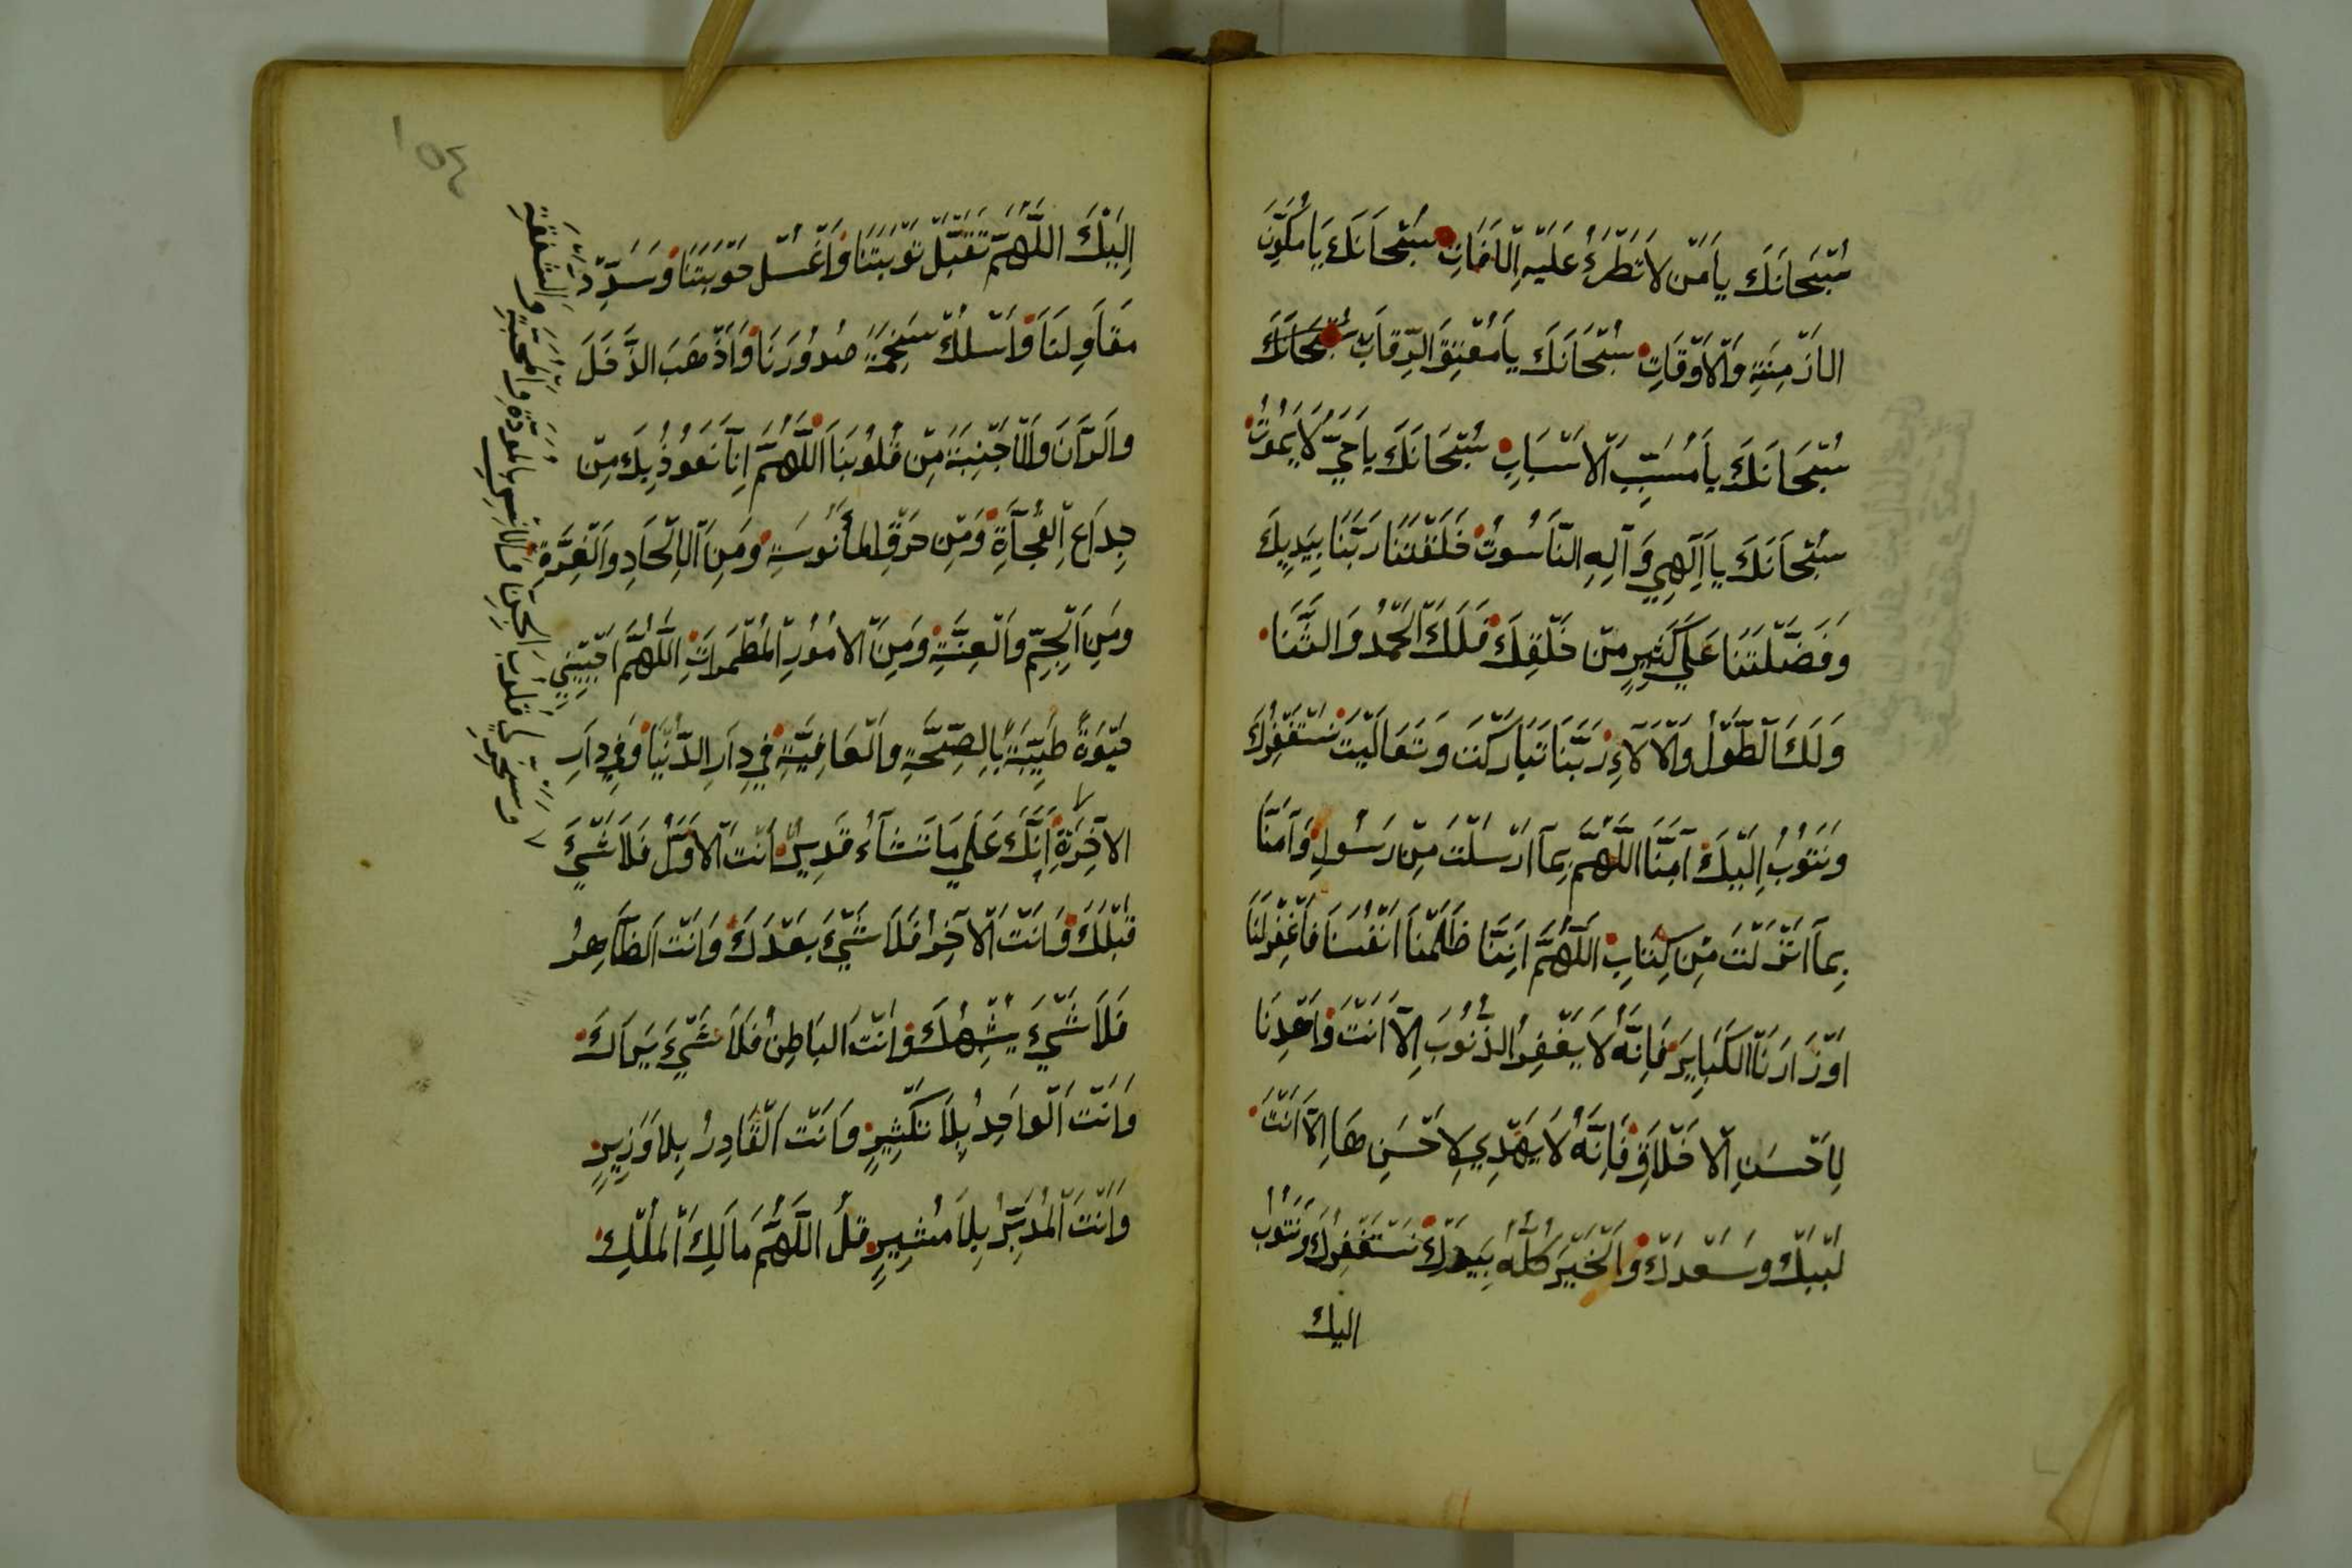 سُبْحَانَكَ يَا مَنْ لَا تَطْرَءُ عَلَيْهِ الْآفَاتِ سُبْحَانَكَ يَا مُكَوِّنَ
الْأَزْمِنَةِ وَالْأَوْقَاتِ سُبْحَانَكَ يَا مُعْتِقَ الرِّقَابِ سُبْحَانَكَ
سُبْحَانَكَ يَا مُسَبِّبَ الْأَسْبَابِ سُبْحَانَكَ يَا حَيُّ لَا يَمُوتُ
سُبْحَانَكَ يَا إِلَهِي وَآلِهِ النَّاسُوتُ خَلَقْتَنَا رَبَّنَا بِيَدِيكَ
وَفَضَّلْتَنَا عَلَى كَثِيرٍ مِنْ خَلْقِكَ فَلَكَ الْحَمْدُ وَالثَّنَا
وَلَكَ الطَّوْلُ وَالْآلَاءِ رَبَّنَا تَبَارَكْتَ وَتَعَالَيْتَ نَسْتَغْفِرُكَ
وَنَتُوبُ إِلَيْكَ آمَنَّا اللَّهُمَّ بِمَا أَرْسَلْتَ مِنْ رَسُولٍ وَآمَنَّا
بِمَا أَنْزَلْتَ مِنْ كِتَابٍ اللَّهُمَّ إِنَّنَا ظَلَمْنَا أَنْفُسَنَا فَاغْفِرْ لَنَا
أَوْزَارَنَا الْكَبَايِرَ فَإِنَّهُ لَا يَغْفِرُ الذُّنُوبَ إِلَّا أَنْتَ وَاهْدِنَا
لِأَحْسَنِ الْأَخْلَاقِ فَإِنَّهُ لَا يَهْدِي لِأَحْسَنِهَا إِلَّا أَنْتَ
لَبَّيْكَ وَسَعْدَكَ وَالْخَيْرَ كُلُّهُ بِيَدِكَ نَسْتَغْفِرُكَ وَنَتُوبُ
اليك
١٥٤
إِلَيْكَ اللَّهُمَّ تَقَبَّلْ تَوْبَتَنَا وَاغْسِلْ حَوْبَتَنَا وَسَدِّدْ
مَقَاوِلَنَا وَاسْلُكْ سَخِيمَةَ صُدُورَنَا وَأَذْهَبَ الدَّخَلَ
وَالرَّانَ وَالْأَجْنَبِيَةَ مِنْ قُلُوبِنَا اللَّهُمَّ إِنَّا نَعُوذُ بِكَ مِنْ
جِدَاعِ الْفُجْآةِ وَمِنْ حَرَقِ الْمَأْنُوسَةِ وَمِنَ الْإِلْحَادِ وَالْغِرَّةِ
وَمِنَ الْجِمِّ وَالْعِنَّةِ وَمِنَ الْأُمُورِ الْمُطْمَرَاتِ اللَّهُمَّ أَحْيِينِي
حَيَوةً طَيِّبَةً بِالصِّحَّةِ وَالْعَافِيَّةِ فِي دَارِ الدُّنْيَا وَفِي دَارِ
الْآخِرَةِ إِنَّكَ عَلَى مَا تَشَآءُ قَدِيرٌ أَنْتَ الْأَوَّلُ فَلَا شَيْءَ
قَبْلَكَ وَأَنْتَ الْآخِرُ فَلَا شَيْءَ بَعْدَكَ وَأَنْتَ الظَّاهِرُ
فَلَا شَيْءَ يُشْبِهُكَ وَأَنْتَ الْبَاطِنُ فَلَا شَيْءَ يَرَاكَ
وَأَنْتَ الْوَاحِدُ بِلَا تَكْثِيرٍ وَأَنْتَ الْقَادِرُ بِلَا وَزِيرٍ
وَأَنْتَ الْمُدَبِّرُ بِلَا مُشِيرٍ قُلْ اللَّهُمَّ مَالِكَ الْمُلْكِ
وسخر لي قلوب الجن والانس بالمودة والمحبة والشفقة